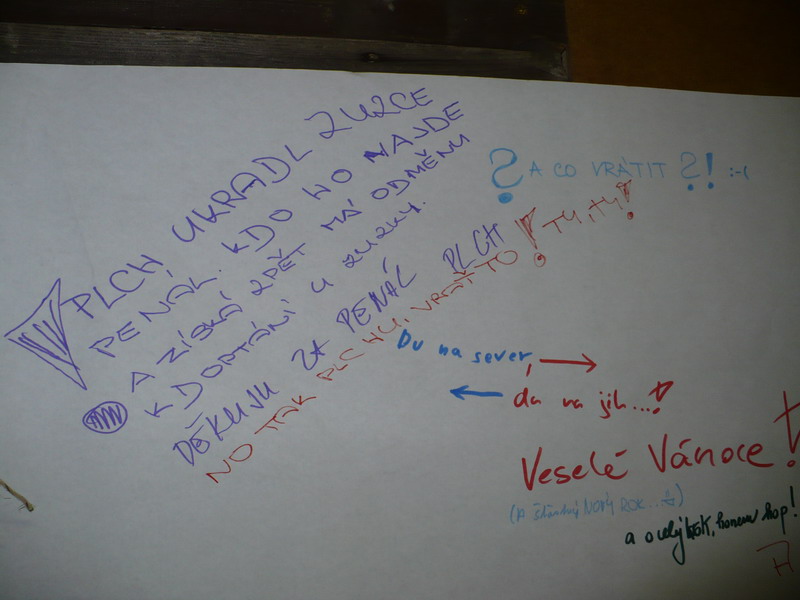 PLCH UKRADL ZUZCE
PENÁL. KDO HO NAJDE
A ZÍSKÁ ZPĚT MÁ ODMĚNU
K DOPTÁNÍ U ZUZKY.
DĚKUJU ZA PENÁL PLCH
NO TAK PLCHU, VRAŤ TO! TY, TY!
? A CO VRÁTIT ?! :-(
Du na sever,
da na jih...!
Veselé Vánoce!
(A šťastný NOVÝ ROK...)
a celý rok, honem hop!